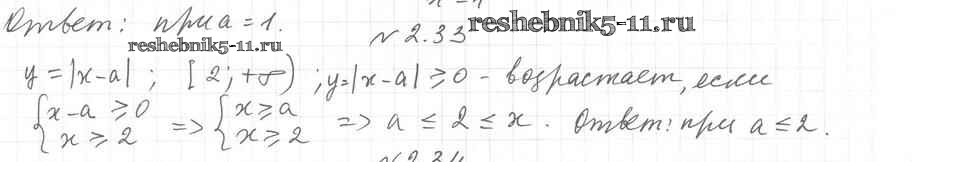 Ответ: при a = 1.
№ 2.33
reshebnik5-11.ru
reshebnik5-11.ru
y = |x-a| ; [2; +∞) ; y = |x-a| ≥ 0 - возрастает, если
{x-a ≥ 0 => {x ≥ a => a ≤ 2 ≤ x. Ответ: при a ≤ 2.
x ≥ 2 x ≥ 2